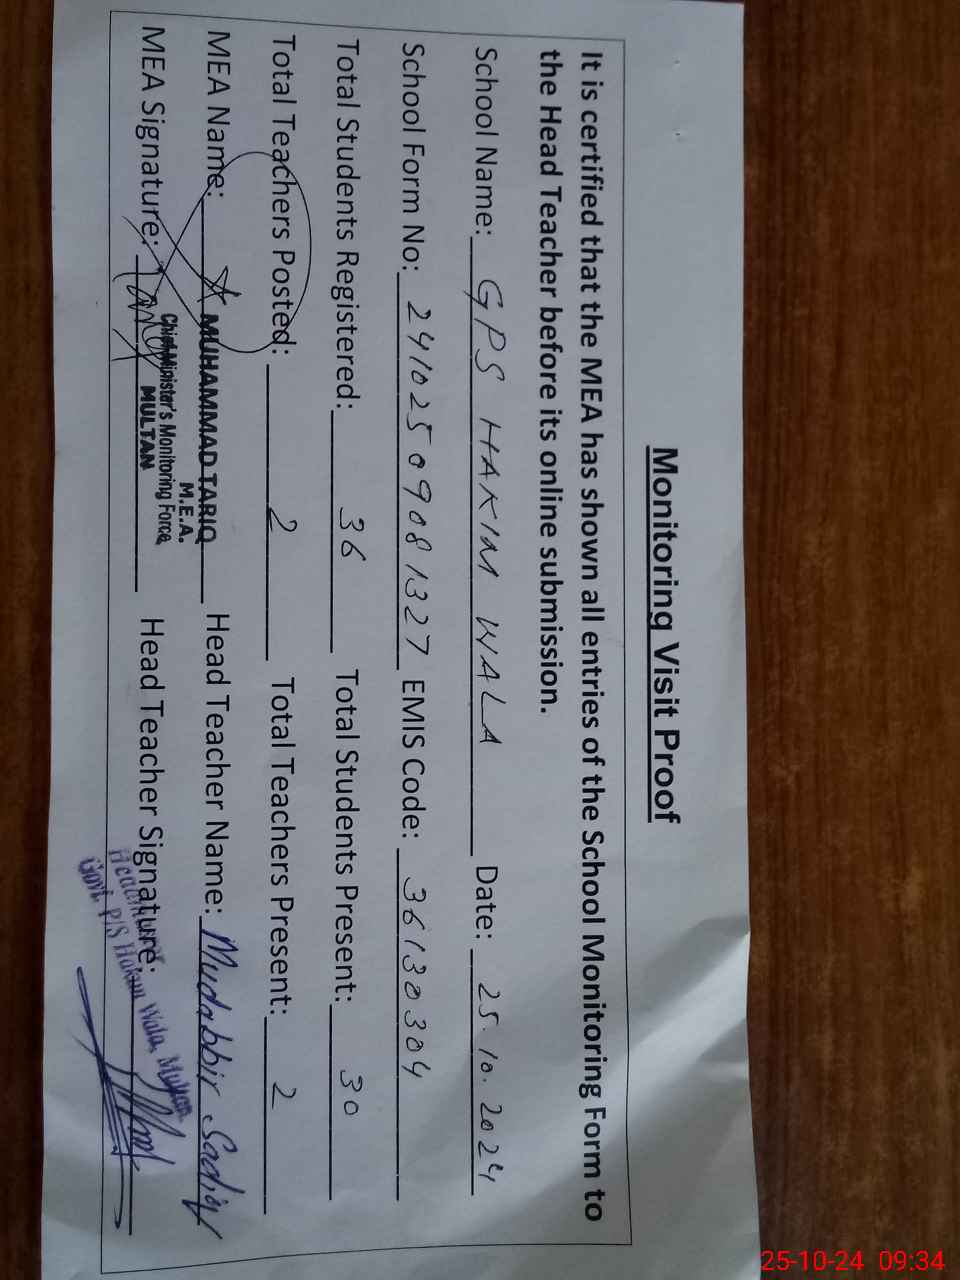 Monitoring Visit Proof
It is certified that the MEA has shown all entries of the School Monitoring Form to
the Head Teacher before its online submission.
School Name: GPS HAKIM WALA Date: 25.10.2024
School Form No: 24102509081327 EMIS Code: 36130304
Total Students Registered: 36 Total Students Present: 30
Total Teachers Posted: 2 Total Teachers Present: 2
MEA Name: MUHAMMAD TARIQ Head Teacher Name: Mudabbir Sadiq
M.E.A.
Chief Minister's Monitoring Force
MULTAN
MEA Signature: Head Teacher Signature:
Govt. P/S Hakim Wala, Multan
25-10-24 09:34